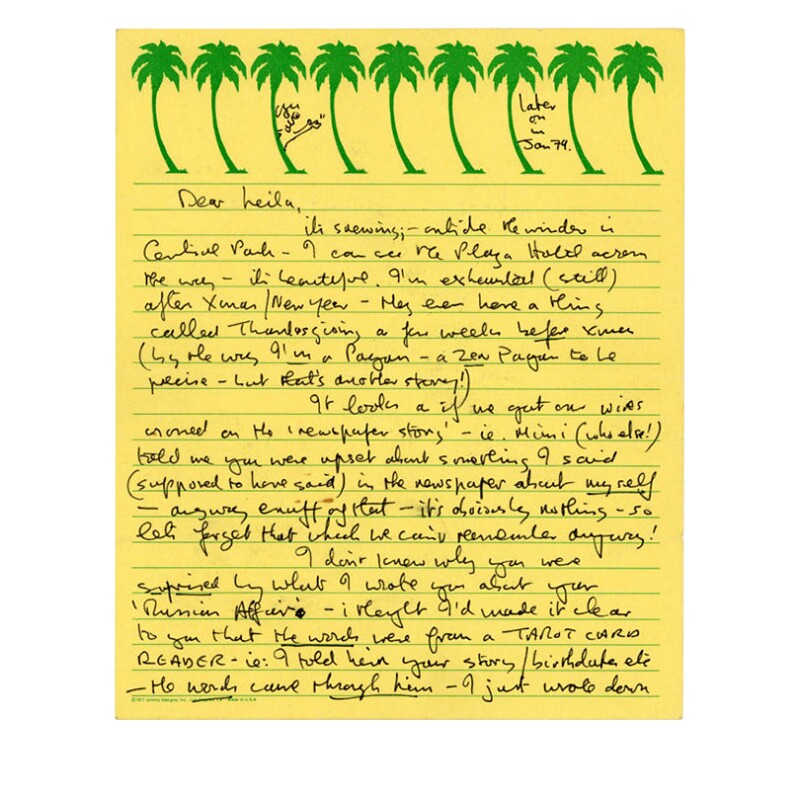 later
on
in
Jan 79.
Dear Leila,
its snowing; – outside the window in
Central Park – I can see the Plaza Hotel across
the way – its beautiful. I'm exhausted (still)
after Xmas/New Year – they even have a thing
called Thanksgiving a few weeks before Xmas
(by the way I'm a Pagan – a Zen Pagan to be
precise – but that's another story!)
It looks as if we got our wires
crossed on the 'newspaper story' – ie. Mimi (who else!)
told me you were upset about something I said
(supposed to have said) in the newspaper about myself
– anyway enuff of that – it's obviously nothing – so
lets forget that which we can't remember anyway!
I don't know why you were
suprised by what I wrote you about your
'Russian Affair' – i thought I'd made it clear
to you that the words were from a TAROT CARD
READER – ie: I told him your story/birthdates etc
– the words came through him – I just wrote down